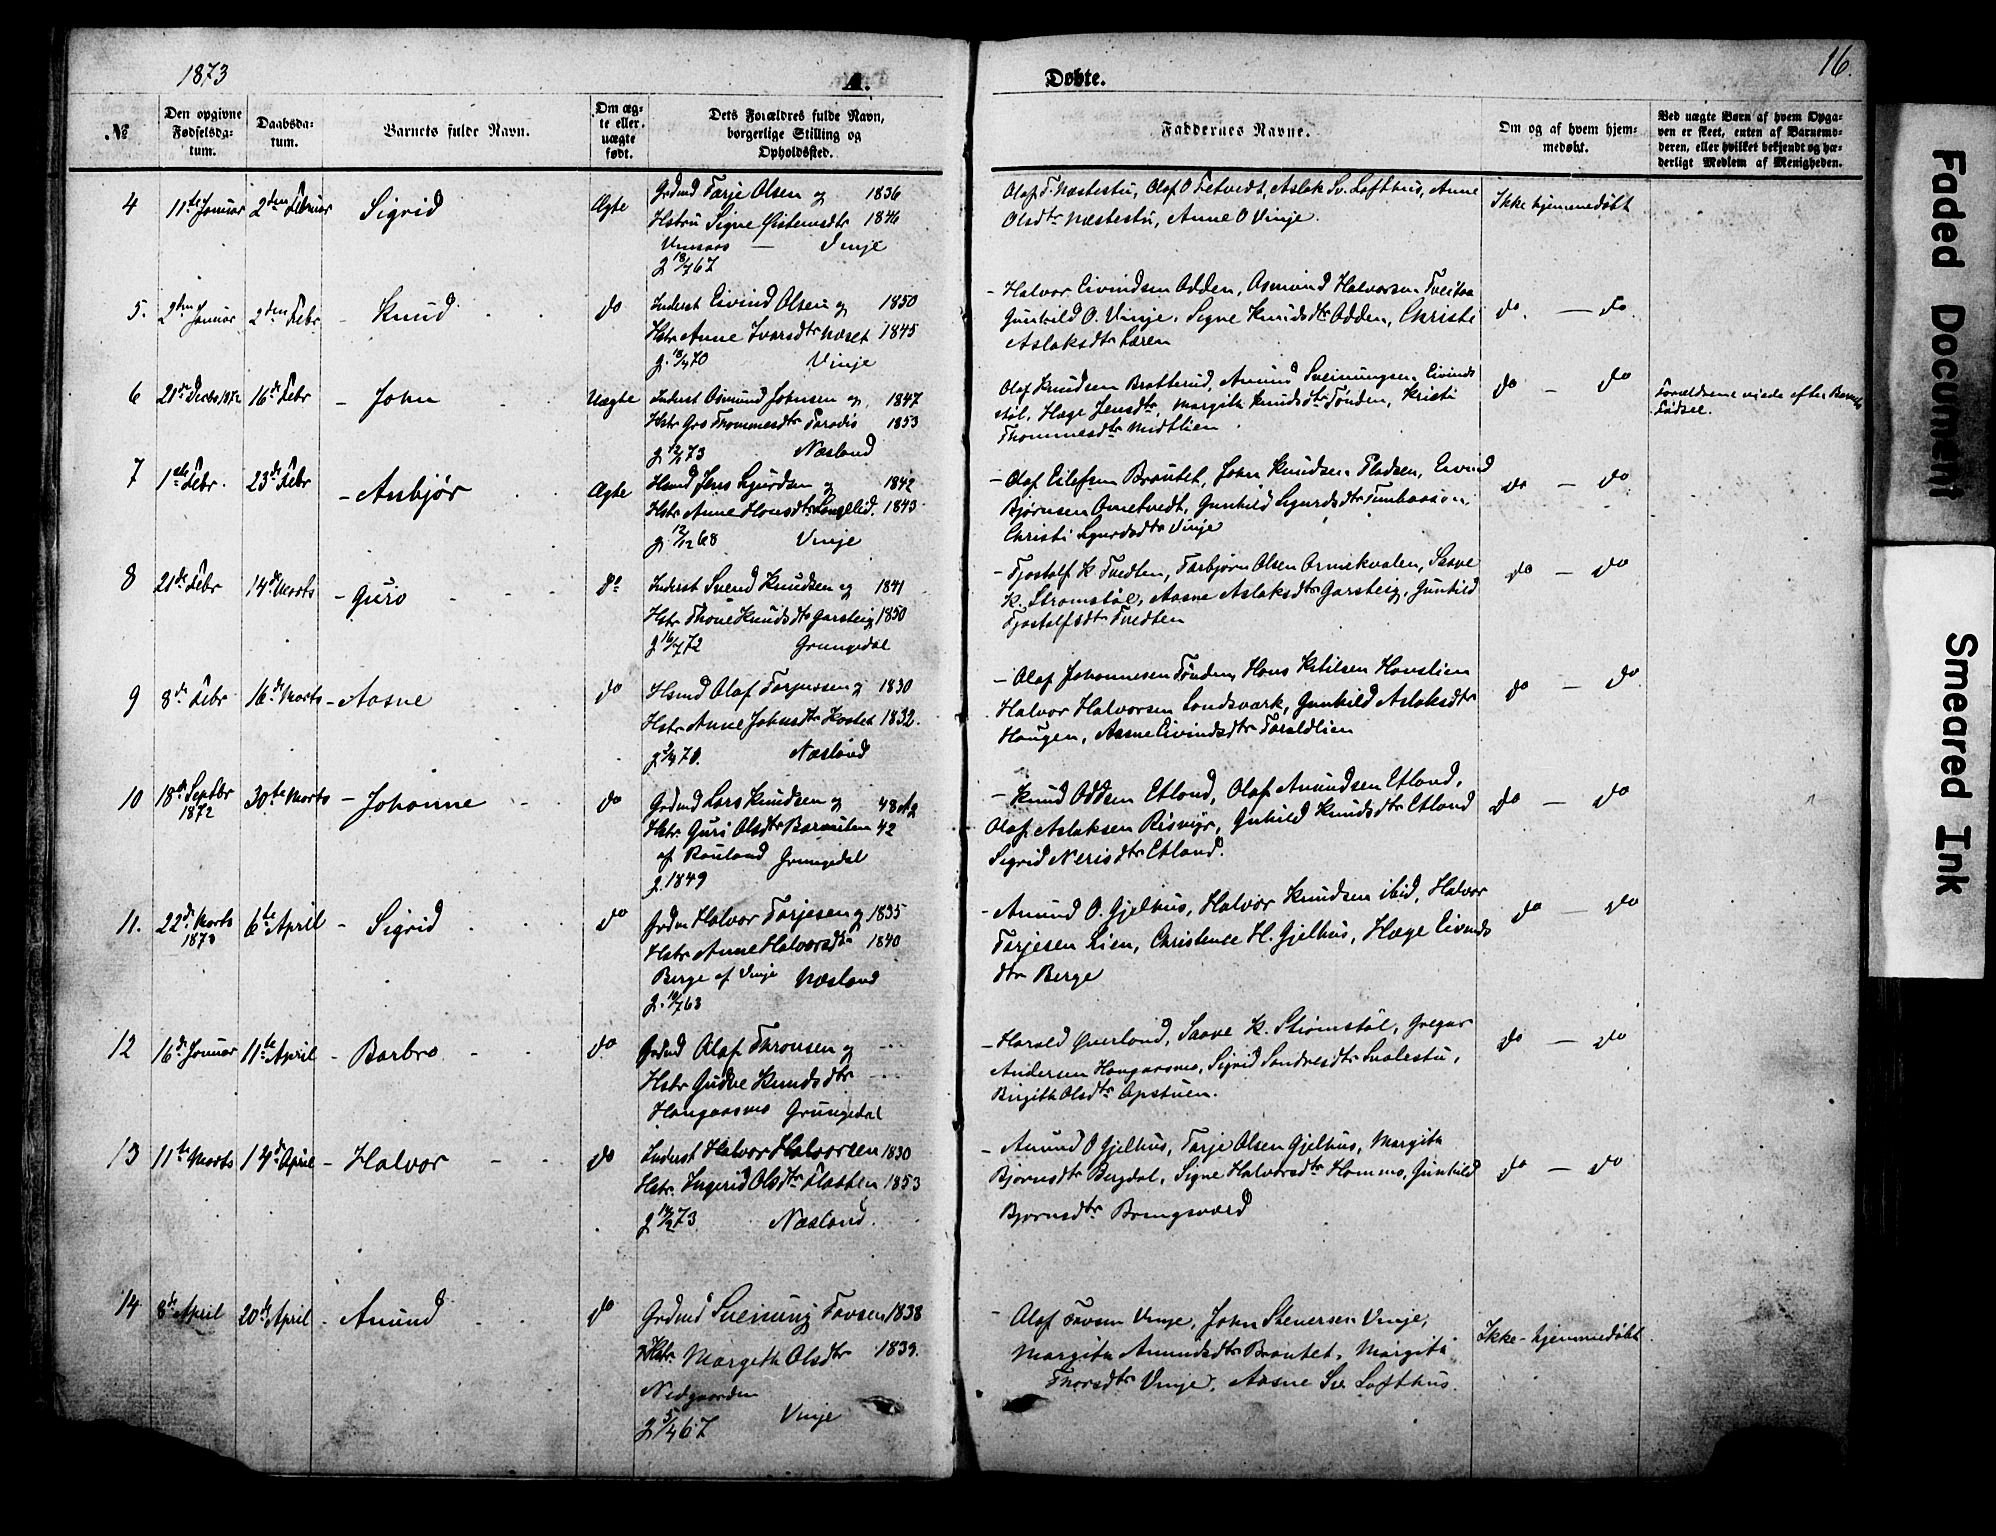 1873
A.
Døbte.
16.
№
Den opgivne Fødselsda-tum.
Daabsda-tum.
Barnets fulde Navn.
Om æg-te eller uægte født.
Dets Forældres fulde Navn, borgerlige Stilling og Opholdssted.
Faddernes Navne.
Om og af hvem hjem-medøbt.
Ved uægte Børn af hvem Opga-ven er skeet, enten af Barnemo-deren, eller hvilket bekjendt og hæ-derligt Medlem af Menigheden.
4 11te Januar 2den Februar Sigrid Ægte
Grdmd Tarje Olsen og 1836
Hstru Signe Østensdtr 1846
Vinje
g 18/7 67
Olaf T. Næstestu, Olaf O Tetvedt, Aslak Sv. Lofthus, Anne
Olsdtr Næstestu, Anne O Vinje.
Ikke hjemmedøbt
5. 2den Januar 2den Febr - Knud do
Inderst Eivind Olsen og 1850
Hstr Anne Ivarsdtr Næset 1845
Vinje
- Halvor Eivindsen Odden, Asmund Halvorsen
Gunhild O. Vinje, Signe Knudsdtr Odden, Christi
Aslaksdtr Læren
do. — do.
6 21de Decbr 1872 16de Febr - John Uægte
Inderst Asmund Johnsen og 1847
Hstr Gro Thommesdtr Paradis 1853
Næsland
Olaf Knudsen Bratterud, Amund Sveinungsen Eivinds
støl, Hæge Jensdtr, Margith Knudsdtr Tønden, Kristi
Thommesdtr Midtlien
do — do
Forældrene viede efter Barnets
Fødsel.
7 1ste Febr. 23de Febr - Anbjør Ægte
Hsmd Jens Sjurdsen og 1842
Hstr Anne Hansdtr Langelid. 1843
g 12/12 68 Vinje
- Olaf Eilefsen Brautet, John Knudsen Pladsen, Eivind
Bjørnsen Ometvedt, Gunhild Sjurdsdtr
Christi Sjurdsdtr Vinje
do — do
8 21de Febr 14de Marts - Guro do
Inderst Svend Knudsen og 1841
Hstr Thone Knudsdtr Garsteig 1850
g 16/7 72 Grungedal
- Tjostolf K Tvedten, Torbjørn Olsen Ormekvalen, Saave
K. Strømstøl, Aasne Aslaksdtr Garsteig, Gunhild
Tjostolfsdtr Tvedten
do — do
9 8de Febr 16de Marts - Aasne do
Hsmd Olaf Torjussen og 1830
Hstr Anne Johnsdtr Kostet 1832.
Næsland
- Olaf Johannesen Tønden, Hans Ketilsen Hanslien
Halvor Halvorsen Landsværk, Gunhild Aslaksdtr
Haugen, Aasne Eivindsdtr Taraldlien
do — do
10 18de Septbr 1872 30te Marts - Johanne do
Grdmd Lars Knudsen og 48 Ag
Hstr Guri Olsdtr 42
af Rauland Grungedal
g. 1849
- Knud Oddsen Etland, Olaf Amundsen Etland,
Olaf Aslaksen Rismyr, Gunhild Knudsdtr Etland
Sigrid Nerisdtr Etland.
do — do
11. 22de Marts 1873 6te April - Sigrid do
Grdm Halvor Tarjesen og 1835
Hstr Anne Halvorsdtr 1840
Berge af Vinje Næsland
g. 10/7 63
- Amund O. Gjelhus, Halvor Knudsen ibid, Halvor
Tarjesen Lien, Christence H. Gjelhus, Hæge Eivinds
dtr Berge
do — do
12 16de Januar 11te April - Barbro do
Grdmd Olaf Thronsen og
Hstr Gudve Knudsdtr
Haugaasmo Grungedal
- Harald Øverland, Saave K. Strømstøl, Gregar
Andersen Haugaasmo, Sigrid Sondresdtr Svalestu,
Birgith Olsdtr Opstuen.
do — do
13 11te Marts 14de April - Halvor do
Inderst Halvor Halvorsen 1830
Hstr. Ingerid Olsdtr Flaatten 1853
Næsland.
- Amund O Gjelhus, Tarje Olsen Gjelhus, Margita
Bjørnsdtr Bergdal, Signe Halvorsdtr Hommo, Gunhild
Bjørnsdtr Bringsværd
do — do
14 8de April 20de April - Amund do
Grdmd Sveinung Tovsen 1838
Hstr. Margith Olsdtr 1839.
Nedgaarden
g 5/4 67 Vinje
- Olaf Tovsen Vinje, John Steversen Vinje,
Margita Amundsdtr Brautet, Margita
Thorsdtr Vinje, Aasne Sv. Lofthus.
Ikke-hjemmedøbt
Faded Document
Smeared Ink